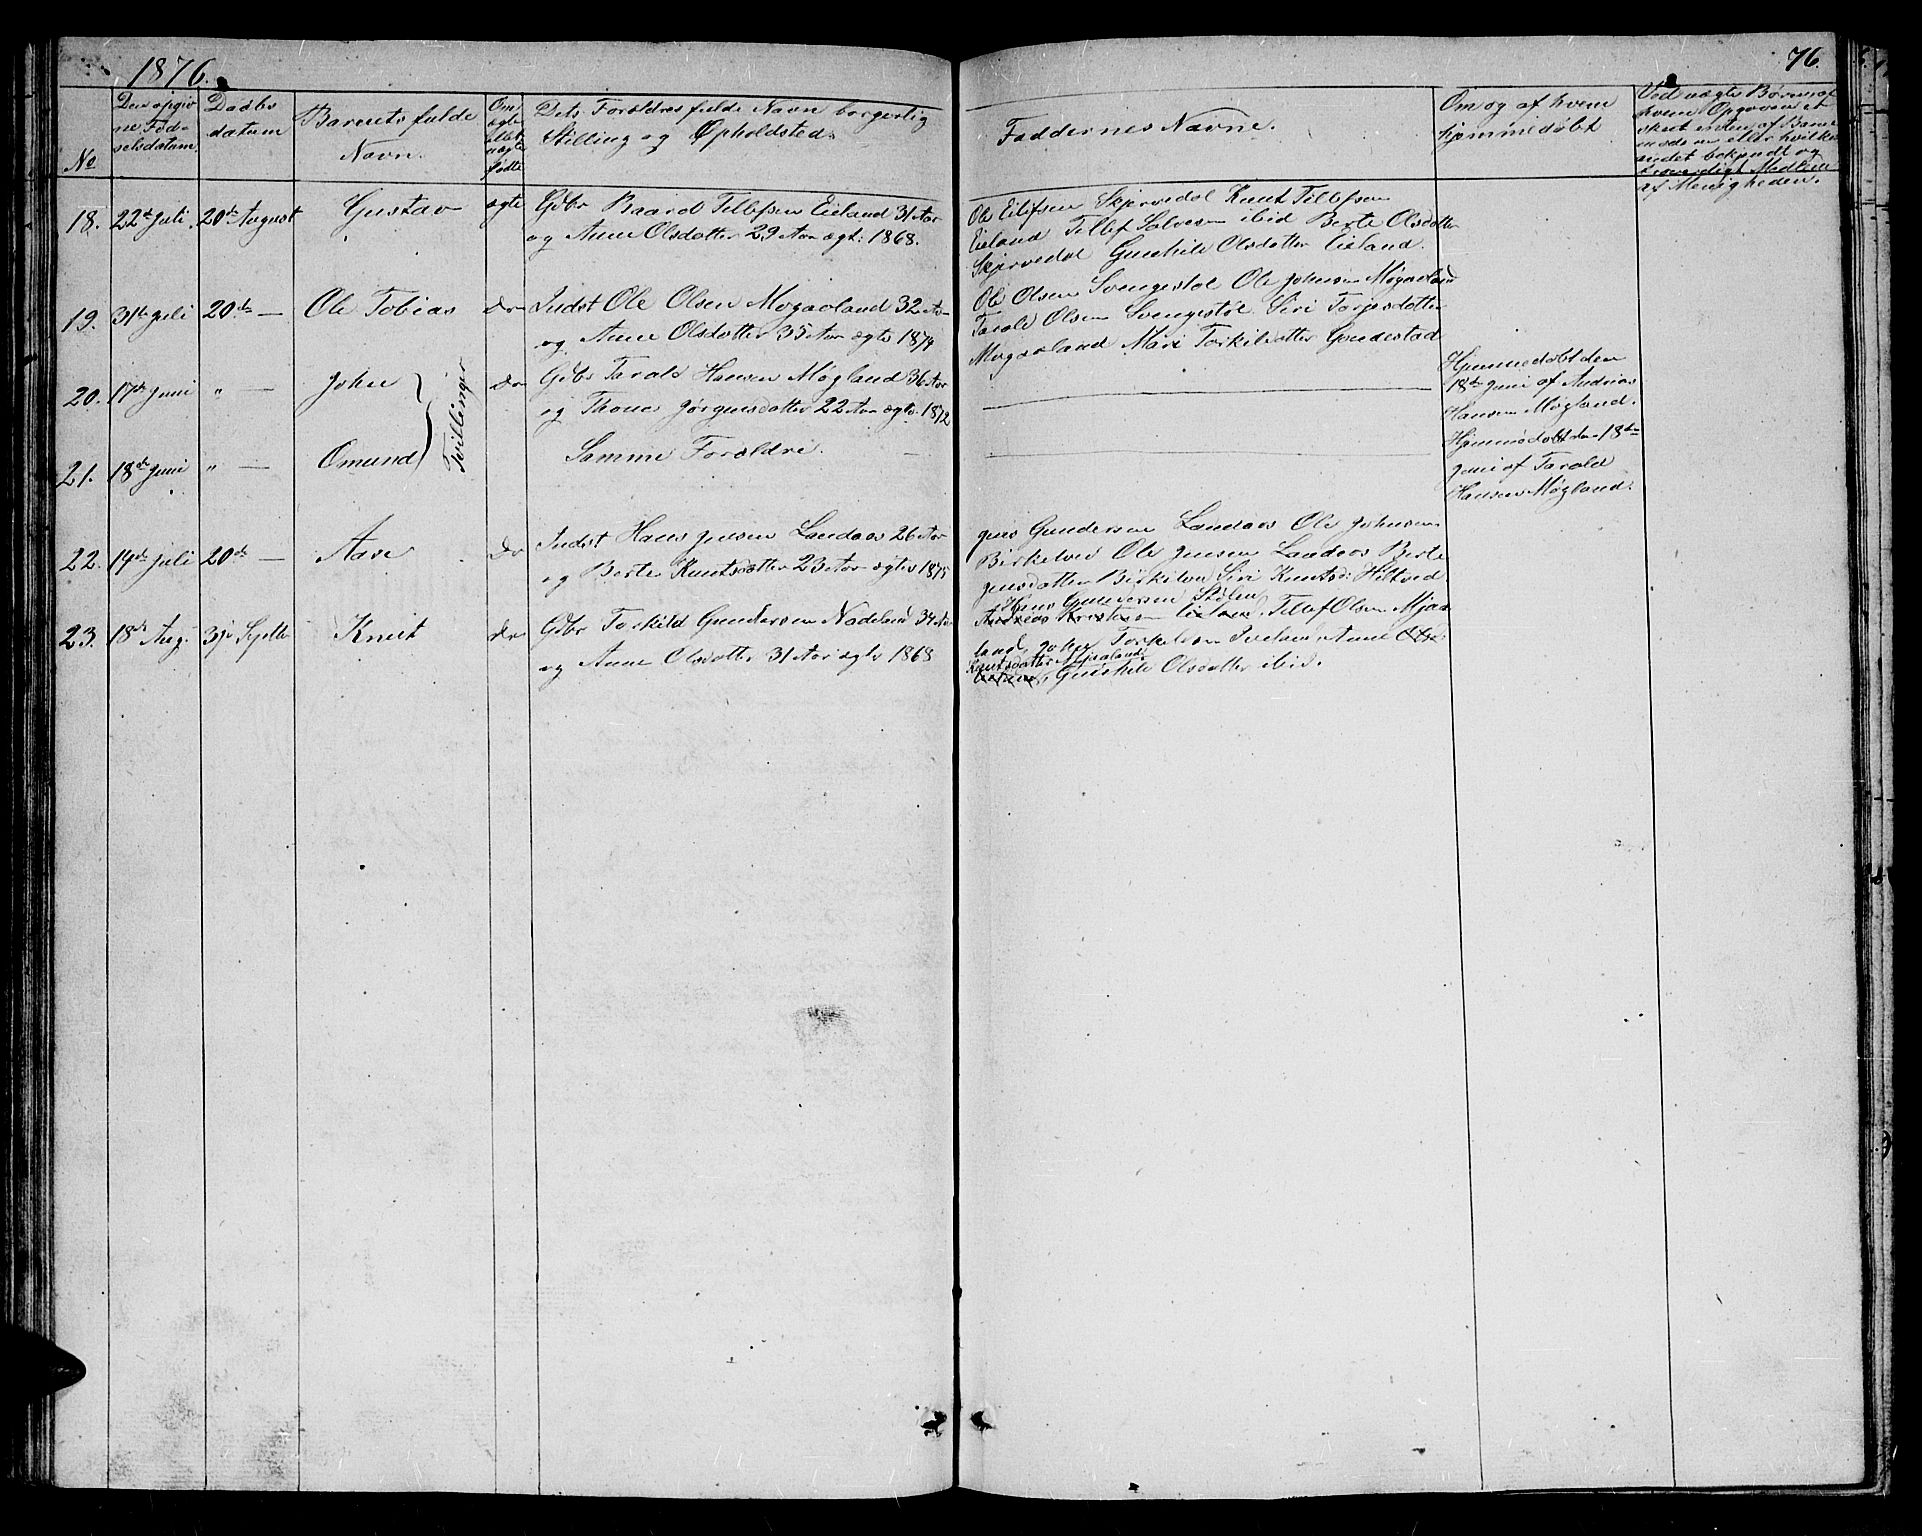 1876.
76.
No
Den opgiv
ne Fød-
selsdatum
Daabs
datum
Barnets fulde
Navn.
Om
ægte
eller
uægte
fødte
Dets Forældres fulde Navn borgerlig
Stilling og Opholdsted.
Faddernes Navne.
Om og af hvem
hjemmedøbt
Ved uægte Børn af
hvem Opgaven er
skeet enten af Barne
moderen eller hvilket
andet bekjendt og
troværdigt Medlem
af Menigheden.
18. 22de Juli 20de August Gustav ægte Gdbr Baard Tellefsen Eieland 31 Aar
og Anne Olsdatter 29 Aar ægt: 1868.
Ole Eilefsen Skjervedal Knut Tellefsen
Eieland Tellef Salvesen ibid Berte Olsdatter
Skjervedal Gunhild Olsdatter Eieland.
19. 31te Juli 20de — Ole Tobias Do Indst Ole Olsen Mogaaland 32 Aar
og Anne Olsdatter 35 Aar ægtv 1874
Ole Olsen Svengestøl Ole Johnsen Mogaaland
Tarald Olsen Svengestøl Siri Torjesdatter
Mogaaland Mari Torkildsdatter Grudestad
20. 17de Juni " — John Do Gdbr Tarald Hansen Møgland 36 Aar
og Thone Jørgensdatter 22 Aar ægtv 1872
Tvillinger
Hjemmedøbt den
18de Juni af Andreas
Hansen Møgland.
21. 18de Juni " — Omund Samme Forældre. —
Hjemmedøbt den 18de
Juni af Tarald
Hansen Møgland.
22. 14de Juli 20de — Aase Do Indst Hans Jensen Landaas 26 Aar
og Berte Knutsdatter 23 Aar ægtev 1875
Jens Gundersen Landaas Ole Johnsen
Birkelid Ole Jensen Landaas Berte
Jensdatter Birkelid Siri Knutsd: Hiltved
23. 18de Aug. 3die Septbr Knut Do Gdbr Torkild Gundersen Nodeland 34 Aar
og Anne Olsdatter 31 Aar ægtv 1868
Hans Gundersen Stølen
Andreas Kristensen Eieland, Tellef Olsen Mjaa
land, Torkelsen Anne Ols
Knutsdatter Mjaaland
Eieland, Gunhild Olsdatter ibid.